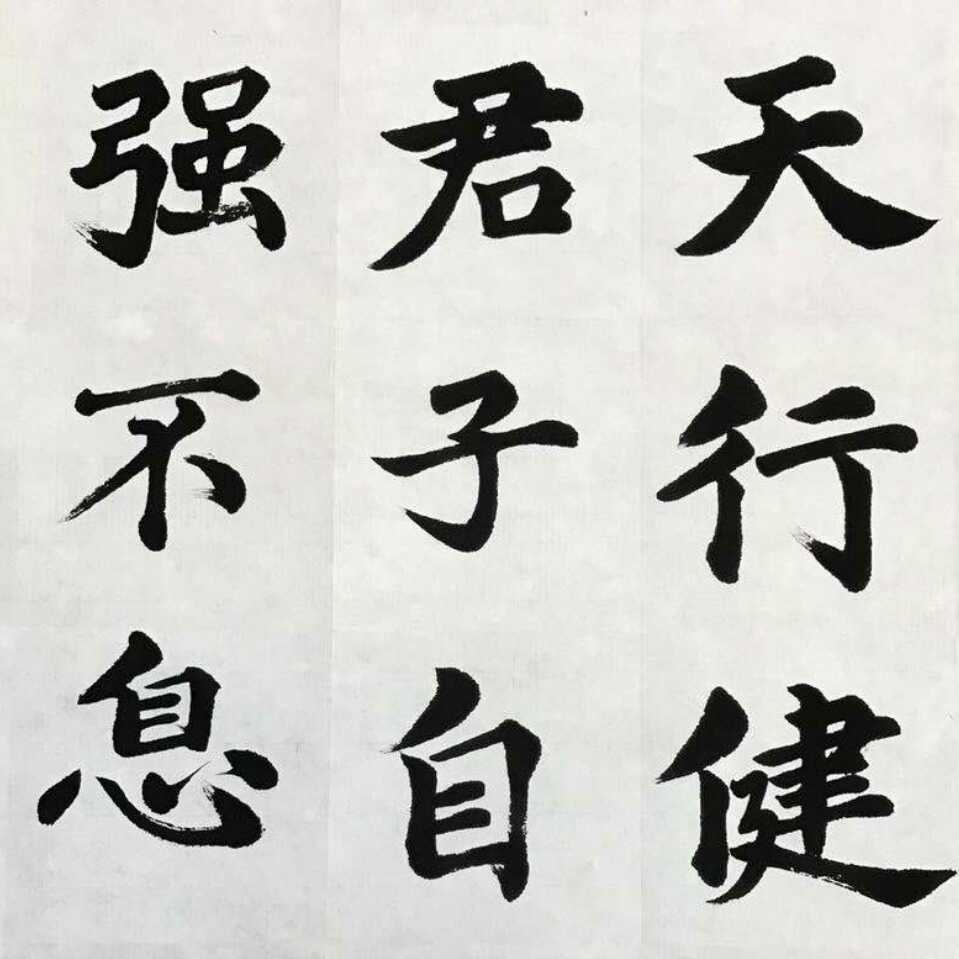 天行健
君子自
强不息